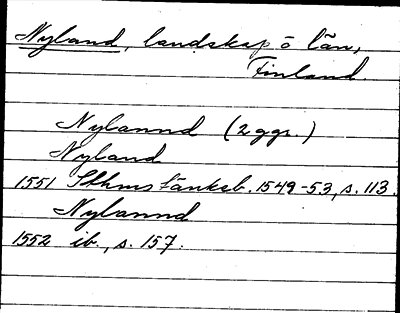 Nyland, landskap o län,
Finland.
Nylannd (2 ggr.)
Nyland
1551 Sthms tänkeb. 1549-53, s. 113.
Nylannd
1552 ib., s. 157.